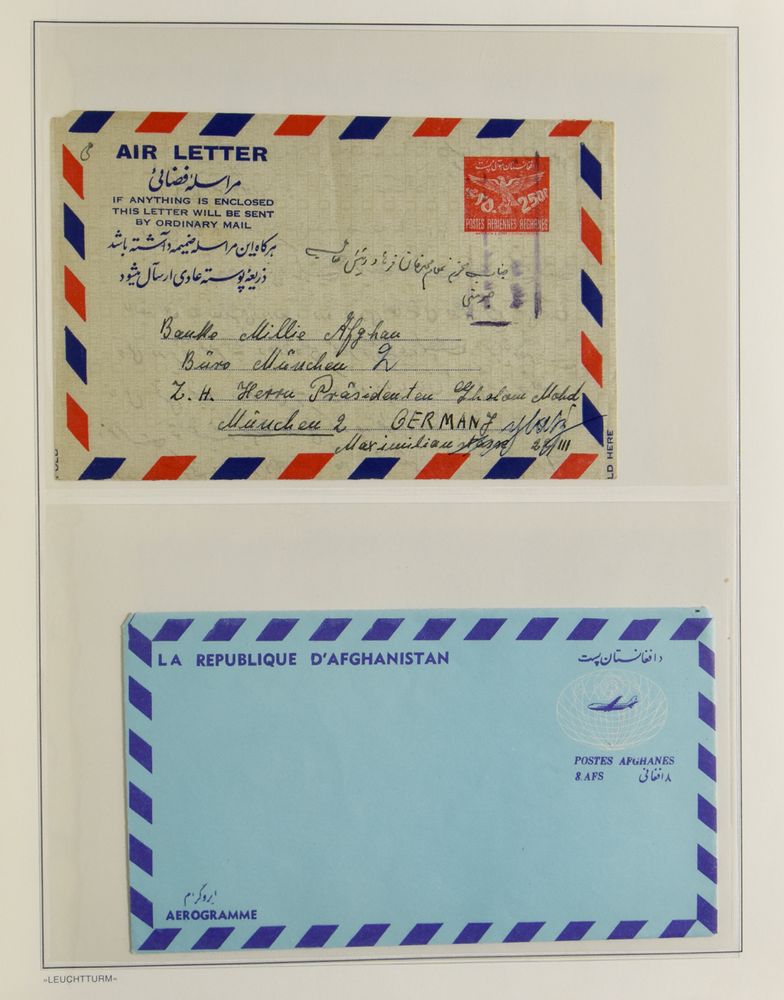 AIR LETTER
مراسلهٔ فضائی
IF ANYTHING IS ENCLOSED
THIS LETTER WILL BE SENT
BY ORDINARY MAIL
هرگاه این مراسله ضمیمه داشته باشد
ذریعهٔ پوسته عادی ارسال میشود
افغانستان هوائی پست
۲۵۰ 250P
POSTES AERIENNES AFGHANES
Banke Millie Afghan
Büro München 2
Z. H. Herrn Präsidenten Gholam Mohd
München 2 GERMANY
Maximilian
LD HERE
LA REPUBLIQUE D'AFGHANISTAN
د افغانستان پست
POSTES AFGHANES
8 AFS ۸ افغانی
ایروگرام
AEROGRAMME
»LEUCHTTURM«